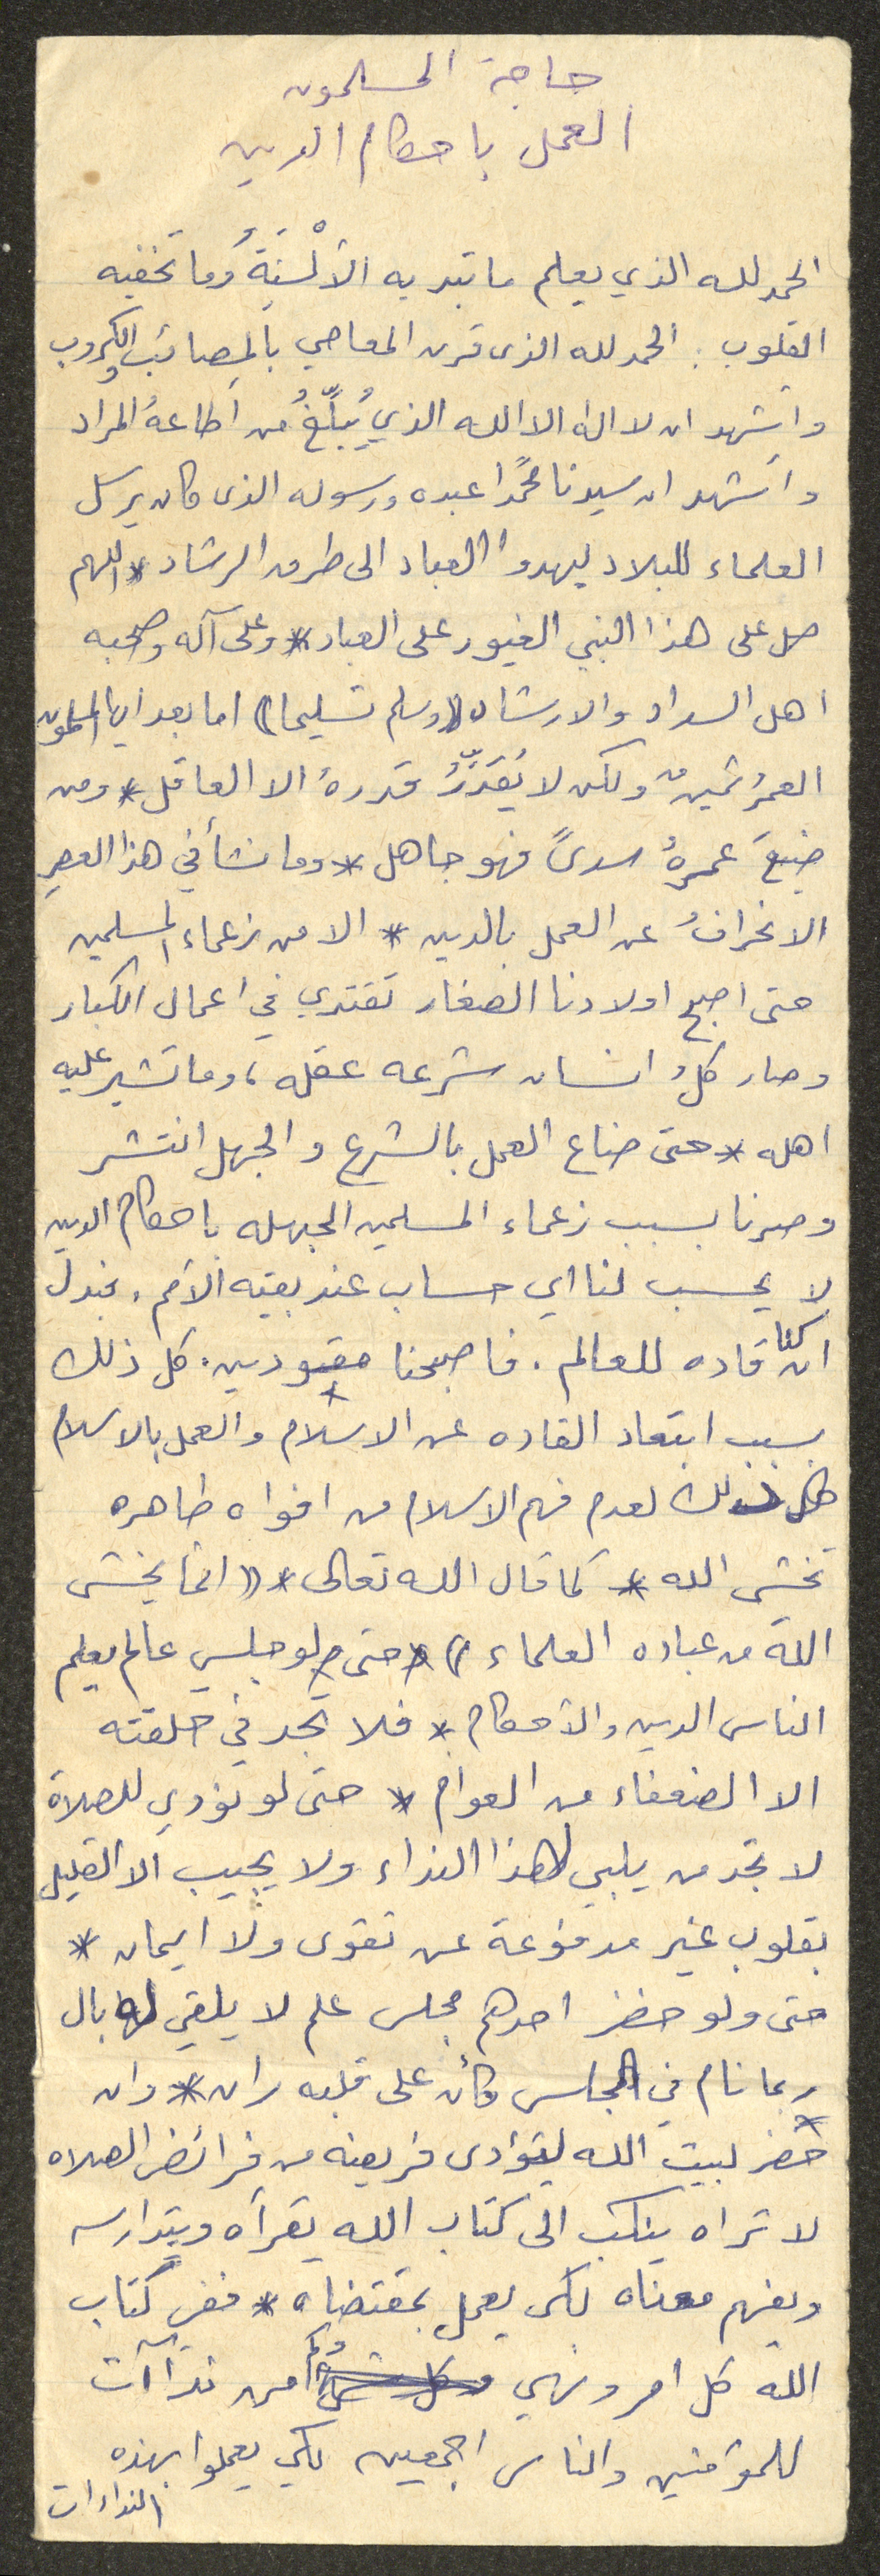 حاجة المسلمون
العمل باحكام الدين
الحمد لله الذي يعلم ما تبديه الأَلْسِنَةُ وما تخفيه
القلوب: الحمد لله الذى قرن المعاصي بالمصائب والكروب
وأشهد ان لا اله الا الله الذي يُبلِّغُ من أطاعهُ المراد
وأشهد ان سيدنا محمدًا عبده ورسوله الذى كان يرسل
العلماء للبلاد ليهدوا العباد الى طرق الرشاد * اللهم
صل على هذا النبي الغيور على العباد * وعلى آله وصحبه
اهل السداد والارشاد ((وسلم تسليما)) اما بعد ايها المسلمون
العمرُ ثمينٌ ولكن لا يُقدِّرُ قدرهُ الا العاقل * ومن
ضيعَ عمرهُ سدىً فهو جاهل * وما نشأ في هذا العصر
الانحرافُ عن العمل بالدين * الا من زعماء المسلمين
حتى اصبح اولادنا الصغار تقتدي في اعمال الكبار
وصار كلُ انسان شرعه عقله، وما تشير عليه
اهله * حتى ضاع العمل بالشرع والجهل انتشر
وصرنا بسبب زعماء المسلمين الجهله باحكام الدين
لا يحسب لنا اي حساب عند بقيه الأمم. فبدل
ان كنا قاده للعالم. فاصبحنا مقودين. كل ذلك
بسبب ابتعاد القاده عن الاسلام والعمل بالاسلام
كل ذلك لعدم فهم الاسلام من افواه طاهره
تخشى الله * كما قال الله تعالى * ((انما يخشى
الله من عباده العلماء)) * حتى ولو جلس عالم يعلم
الناس الدين والأحكام * فلا تجد في حلقته
الا الضعفاء من العوام * حتى لو نودي للصلاة
لا تجد من يلبي لهذا النداء ولا يجيب الا القليل
بقلوب غير مدفوعة عن تقوى ولا ايمان *
حتى ولو حضر احدهم مجلس علم لا يلقي له بال
ربما نام في المجلس وكأن على قلبه ران * وان
حضر لبيت الله ليؤدى فريضه من فرائض الصلاه
لا تراه ينكب الى كتاب الله يقرأه ويتدارسه
ويفهم معناه لكى يعمل بمقتضاه * ففي كتاب
الله كل امر ونهي وكم من نداآت
للمؤمنين والناس اجمعين لكي يعملوا بهذه
النداءات